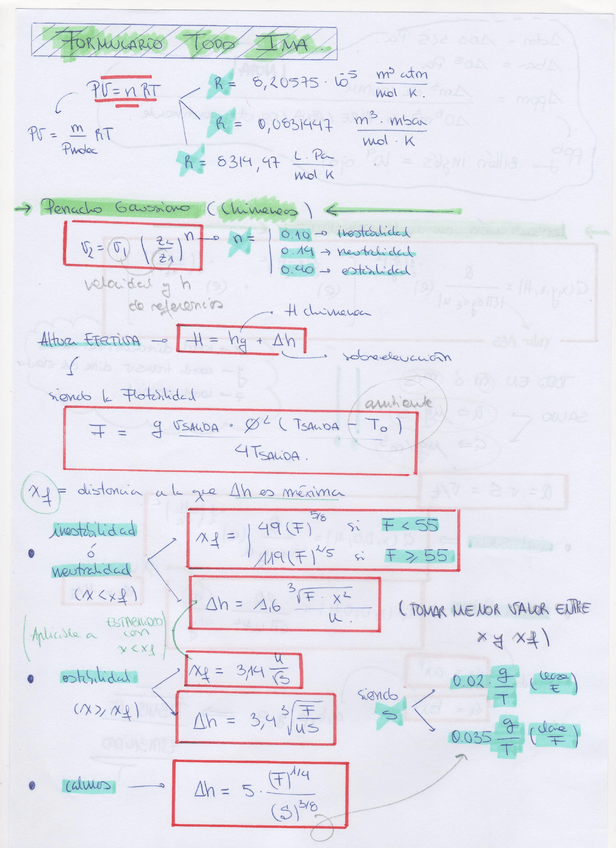 FORMULARIO TODO IMA
PV = nRT
R = 8,20575 · 10⁻⁵ m³ atm / mol K.
R = 0,0831447 m³ · mbar / mol · K
R = 8314,47 L · Pa / mol K
PV = m/Pmolec RT
→ Penacho Gaussiano (Chimeneas) ←
v₂ = v₁ (z₂/z₁)ⁿ → n =
0.10 → inestabilidad
0.14 → neutralidad
0.40 → estabilidad
velocidad y h
de referencia
H chimenea
Altura EFECTIVA → H = hg + Δh
sobreelevación
siendo la Flotabilidad
ambiente
F = g vSALIDA · Ø² (TSALIDA − T₀) / 4TSALIDA.
xf = distancia a la que Δh es máxima
inestabilidad
ó
neutralidad
(x < xf)
xf = 49(F)^5/8 si F < 55
119(F)^2/5 si F ≥ 55
Δh = 1,6 ∛(F · x²) / u.
(TOMAR MENOR VALOR ENTRE
x y xf)
(Aplicable a ESTABILIDAD
con
x < xf)
estabilidad
(x ≥ xf)
xf = 3,14 u/√S
Δh = 3,4 ∛(F/uS)
siendo
S
0.02 · g/T (clase E)
0.035 g/T (clase F)
calmos → Δh = 5 · (F)^1/4 / (S)^3/8